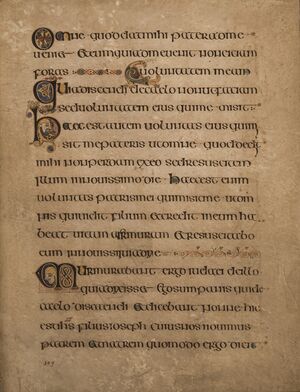 Omne quod dat mihi pater ad me
ueniet & eum qui ad me uenit non eiciam
foras
uoluntatem meam
Quia discendi de caelo non ut faciam
sed uoluntatem eius qui me misit
Haec est autem uoluntas eius qui m
sit me patris ut omne quod dedit
mihi non perdam ex eo sed resuscitem
illum in nouissimo die Haec est enim
uoluntas patris mei qui misit me ut om
nis qui uidit filium & credit in eum ha
beat uitam aeternam & resuscitabo
eum in nouissimo die
Murmurabant ergo iudaei de illo
quia dixisset Ego sum panis qui de
caelo discendi & dicebant nonne hic
est ihs filius ioseph cuius nos nouimus
patrem & matrem quomodo ergo dicit